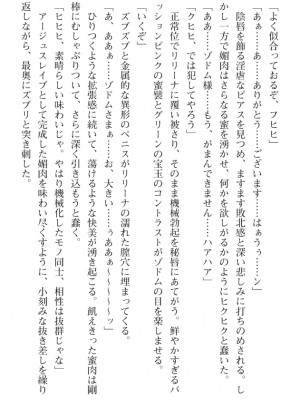 「よく似合っておるぞ、フヒヒ」
「あぁ……あ、ありがとう……ございます……はぁうぅ……ン」
陰唇を飾る淫虐なピアスを見つめ、ますます敗北感と深い悲しみに打ちのめされる。し
かし一方で媚肉はさらなる蜜を湧かせ、何かを欲しがるかのようにヒクヒクと蠢いた。
「あああ……ゾドム様……もう、がまんできません……ハアハア」
「クヒヒ、では犯してやろう」
正常位でリリーナに覆い被さり、そのまま機械勃起を秘唇にあてがう。鮮やかすぎるパ
ッションピンクの蜜襞とグリーンの宝玉のコントラストがゾドムの目を楽しませる。
「いくぞ」
ズブズブと金属的な異形のペニスがリリーナの濡れた膣穴に埋まってくる。
「ああぁ……あぁぁ～～ゾドムさまぁ……お、大きい……ぁ、あああ～～～～～ッ」
ひりつくような拡張感に続いて、蕩けるような快美が湧き起こる。餓えきった蜜肉は剛
棒にむしゃぶりついて、さらに深く引き込もうと蠢く。
「ヒヒヒ、素晴らしい味わいじゃ。やはり機械化したモノ同士、相性は抜群じゃな」
アージュスレイブとして完成した媚肉を味わい尽くすように、小刻みな抜き差しを繰り
返しながら、最奥にズブリと突き刺した。